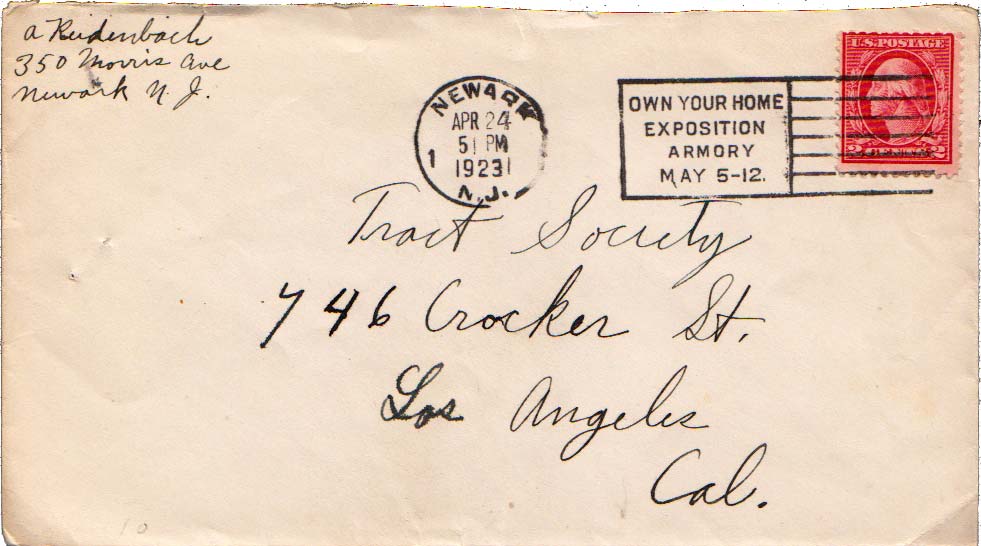 a Reidenbach
350 Morris Ave
Newark N. J.
NEWARK
APR 24
5 PM
1 1923
N.J.
OWN YOUR HOME
EXPOSITION
ARMORY
MAY 5-12.
U.S. POSTAGE
2 2
Tract Society
746 Crocker St.
Los Angeles
Cal.